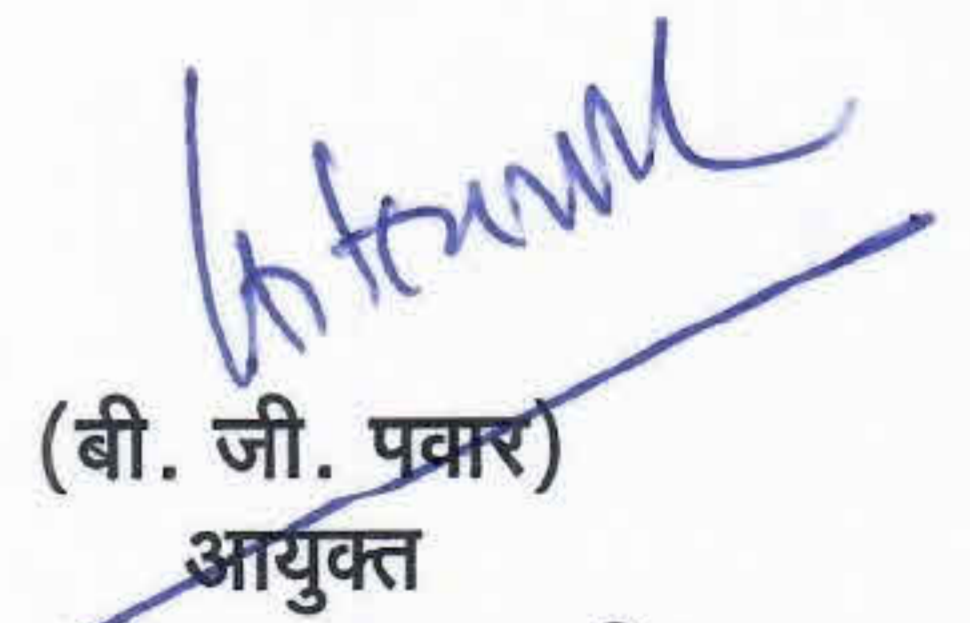 (बी. जी. पवार)
आयुक्त